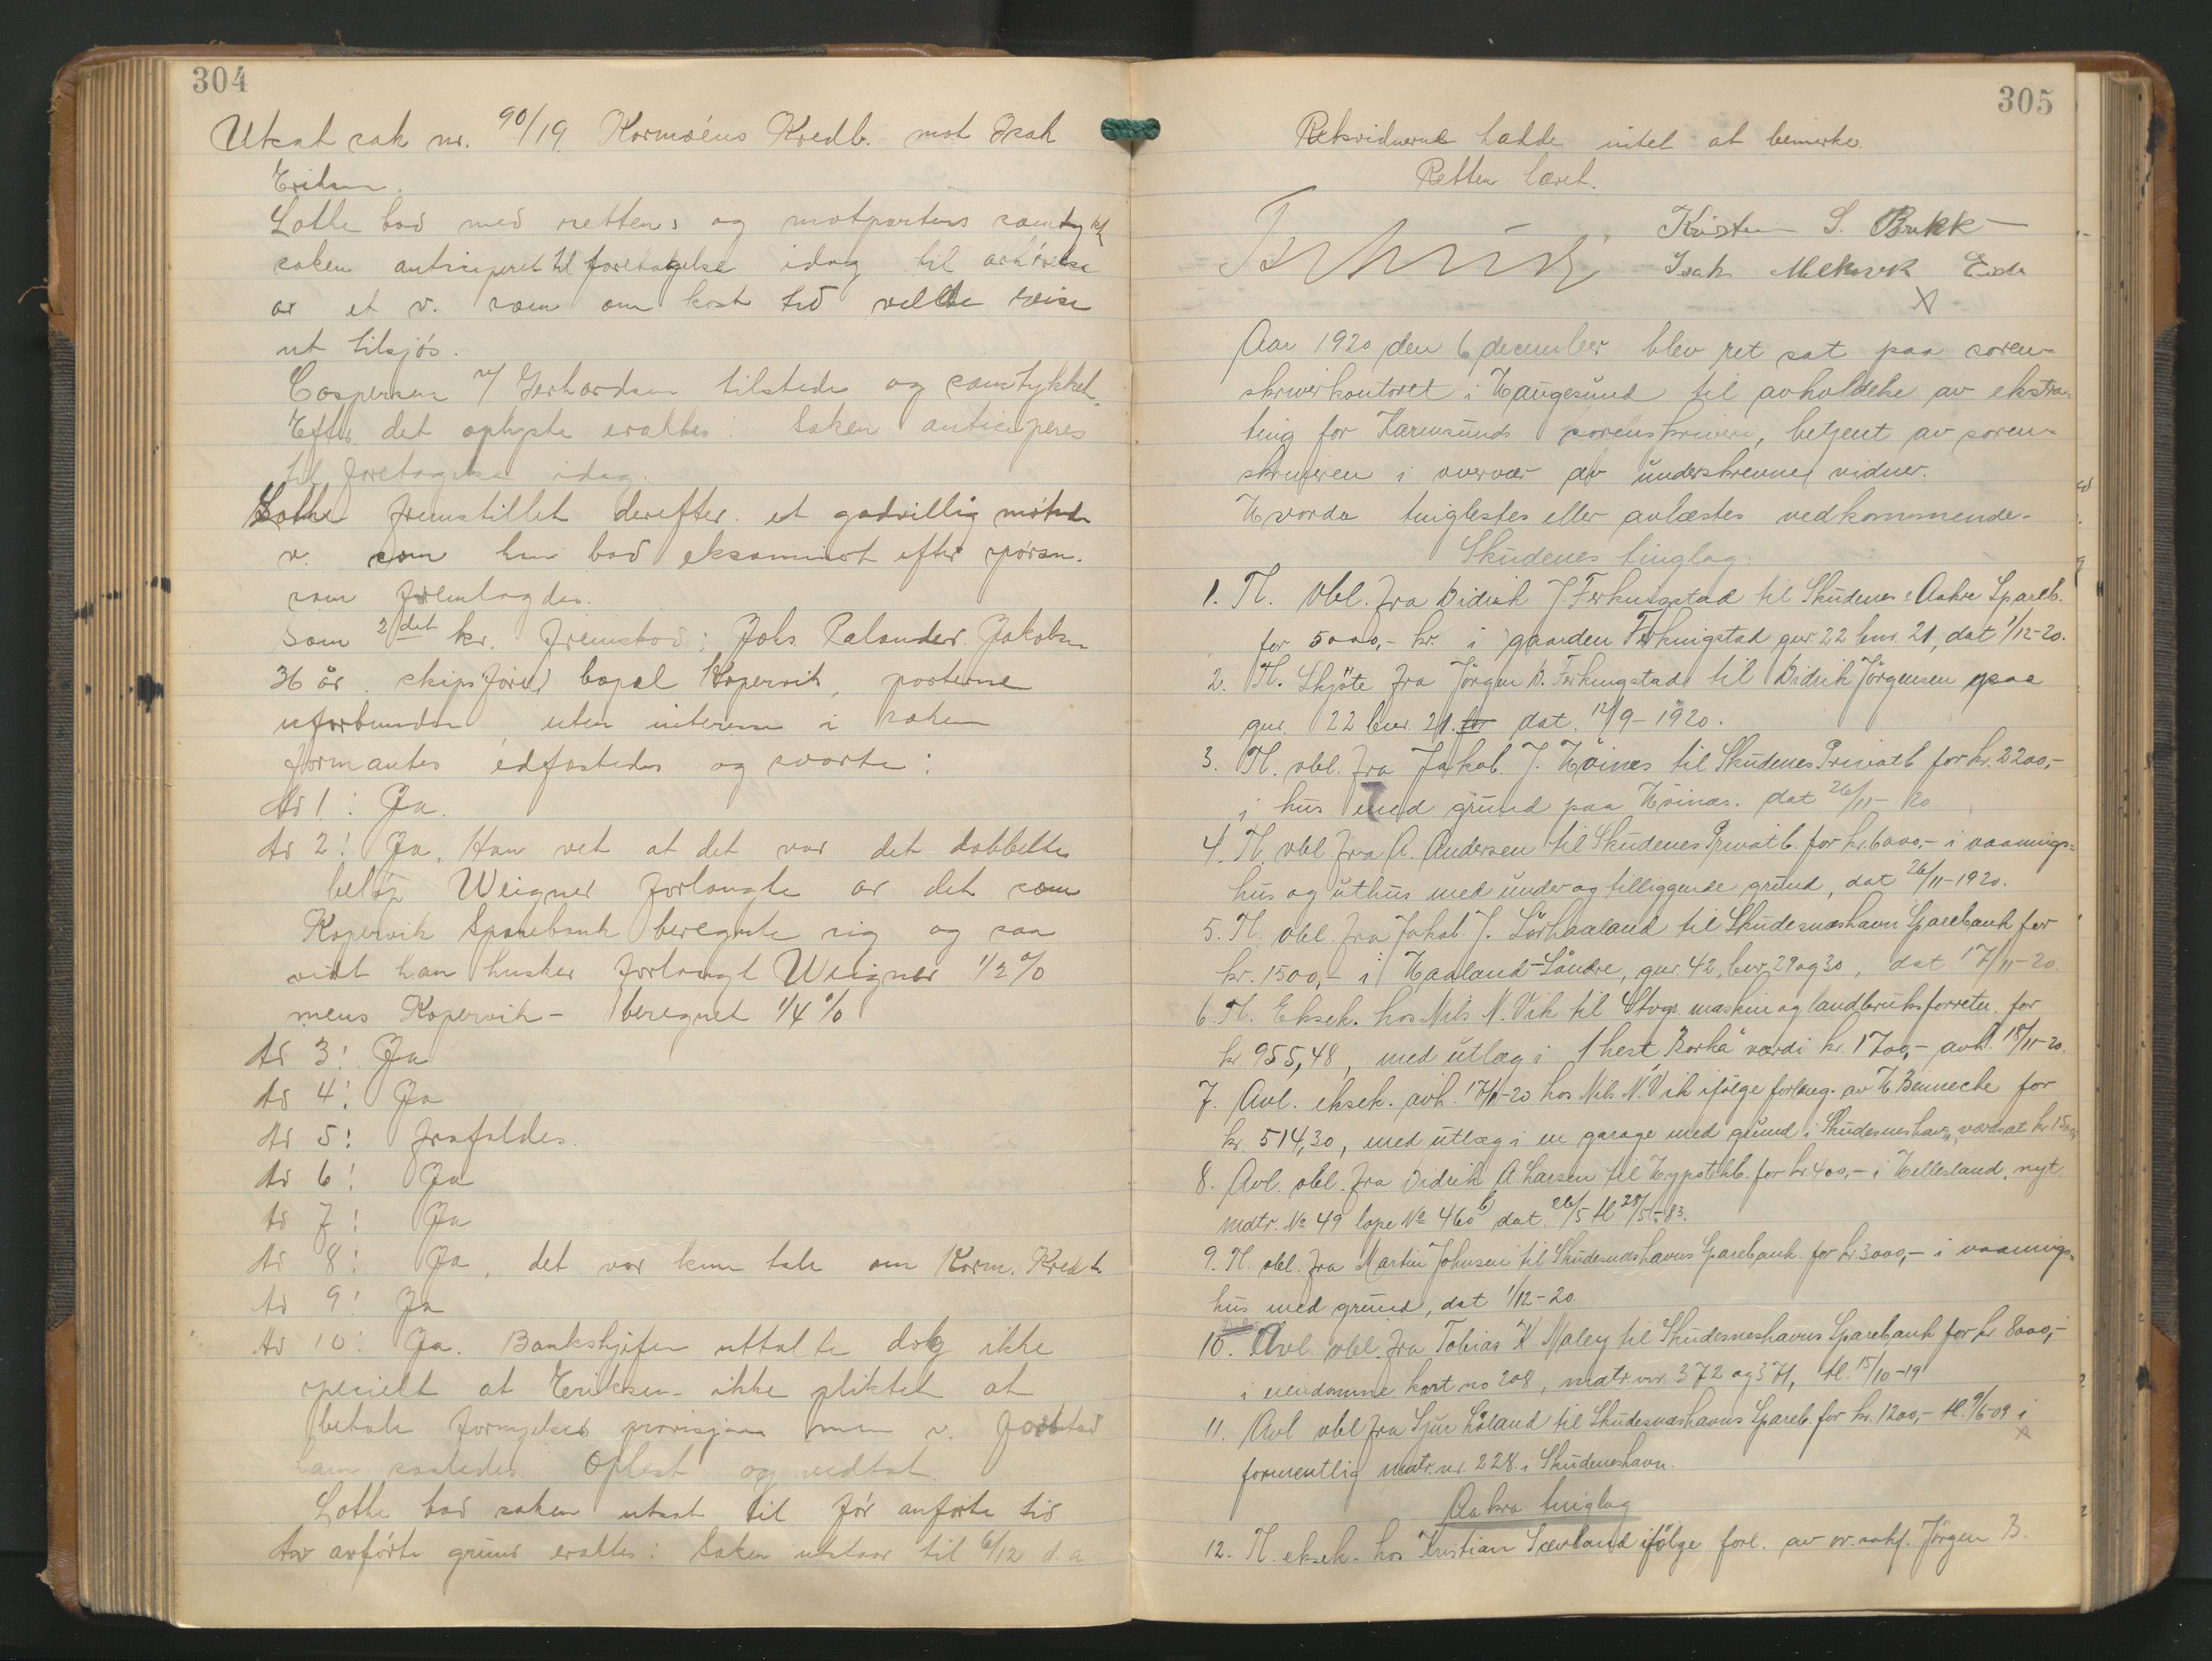 304
Utsat sak nr. 90/19 Karmøens Kredb. mot Isak
Eriksen.
Lothe bad med rettens og motpartens samtykke
saken anticiperet til foretagelse idag til avhørelse
av et v. som om kort tid vilde reise
ut tilsjøs.
Caspersen v/ Gerhardsen tilstede og samtykket.
Efter det oplyste eraktes: Saken anticiperes
til foretagelse idag.
Lothe fremstillet derefter et godvillig møtende
v. som han bad eksaminert efter spørsm.
som fremlagdes.
Som 2det v. fremstod: Johs. Palander Jakobsen
36 år, skipsfører, bopæl Kopervik, parterne
uforbunden, uten interesse i saken
formantes edfæstedes og svarte:
Ad 1: Ja.
Ad 2: Ja. Han vet at det var det dobbelte
beløp Weigner forlangte av det som
Kopervik Sparebank beregnte sig og saa
vidt han husker forlangt Weigner 1/2 %
mens Kopervik - beregnet 1/4 %
Ad 3: Ja
Ad 4: Ja
Ad 5: frafaldes.
Ad 6: Ja
Ad 7: Ja
Ad 8: Ja, det var kun tale om Karm. Kredb.
Ad 9: Ja
Ad 10: Ja. Bankchefen uttalte dog ikke
specielt at Eriksen ikke pliktet at
betale fornyelses provisjon men v. forstod
ham saaledes. Oplest og vedtat.
Lothe bad saken utsat til før anførte tid
Av anførte grund eraktes: Saken utstaar til 6/12 d.a
305
Retsvidnerne hadde intet at bemerke.
Retten hævet.
Kristen S. Brekk
Isak Meksvik Eide
Aar 1920 den 6 december blev ret sat paa soren-
skriverkontoret i Haugesund til avholdelse av ekstra-
ting for Karmsunds sorenskriveri, betjent av soren-
skriveren i overvær av underskrevne vidner.
Hvorda tinglestes eller avlæstes vedkommende-
Skudenes tinglag.
1. Tl. obl. fra Didrik J. Ferkingstad til Skudenes & Aakre Spareb.
for 5000,- kr. i gaarden Ferkingstad gnr. 22 bnr. 21, dat 1/12-20.
2. Tl. Skjøte fra Jørgen D. Ferkingstad til Didrik Jørgensen paa
gnr. 22 bnr. 21. for dat. 12/9-1920.
3. Tl. obl. fra Jakob J. Høines til Skudenes Privatb for kr. 2200,-
i hus med grund paa Høinæs. dat 26/11-20
4. Tl. obl. fra A. Andersen til Skudenes Privatb. for kr. 6000,- i vaanings-
hus og uthus med under og tilliggende grund, dat 26/11-1920.
5. Tl. obl. fra Jakob J. Sørhaaland til Skudesnæshavn Sparebank for
kr. 1500,- i Haaland-Søndre, gnr. 42, bnr. 29 og 30, dat 17/11-20.
6. Tl. Eksek. hos Nils N. Vik til Stvgr. maskin og landbruksforretn. for
kr. 955,48, med utlæg i 1 hest "Borka" værdi kr. 1700,- avh. 18/11-20.
7. Avl. eksek. avh. 17/11-20 hos Nils N. Vik ifølge forlang. av H. Bennecke for
kr. 514,30, med utlæg i en garage med grund i Skudesneshavn, værdsat kr 1500
8. Avl. obl. fra Didrik A. Larsen til Hypotekb. for kr 400,- i Hellesland, nyt
matr. No 49 løpe No 460 b) dat. 26/5 tl 28/5-83.
9. Tl. obl. fra Martin Johnsen til Skudesnæshavns Sparebank. for kr. 3000,- i vaanings-
hus med grund, dat 1/12-20.
10. Avl. obl. fra Tobias K Maley til Skudesneshavns Sparebank for kr 8000,-
i eiendomme kart no 208, matr. nr. 372 og 371, tl. 15/10-19
11. Avl obl fra Sjur Håland til Skudesnæshavns Spareb. for kr. 1200,- tl. 9/6-09 i
formentlig matr. nr. 228 i Skudeneshavn.
Aakra tinglag
12. Tl. eksek. hos Kristian Sævland ifølge forl. av or. sakf. Jørgen B.